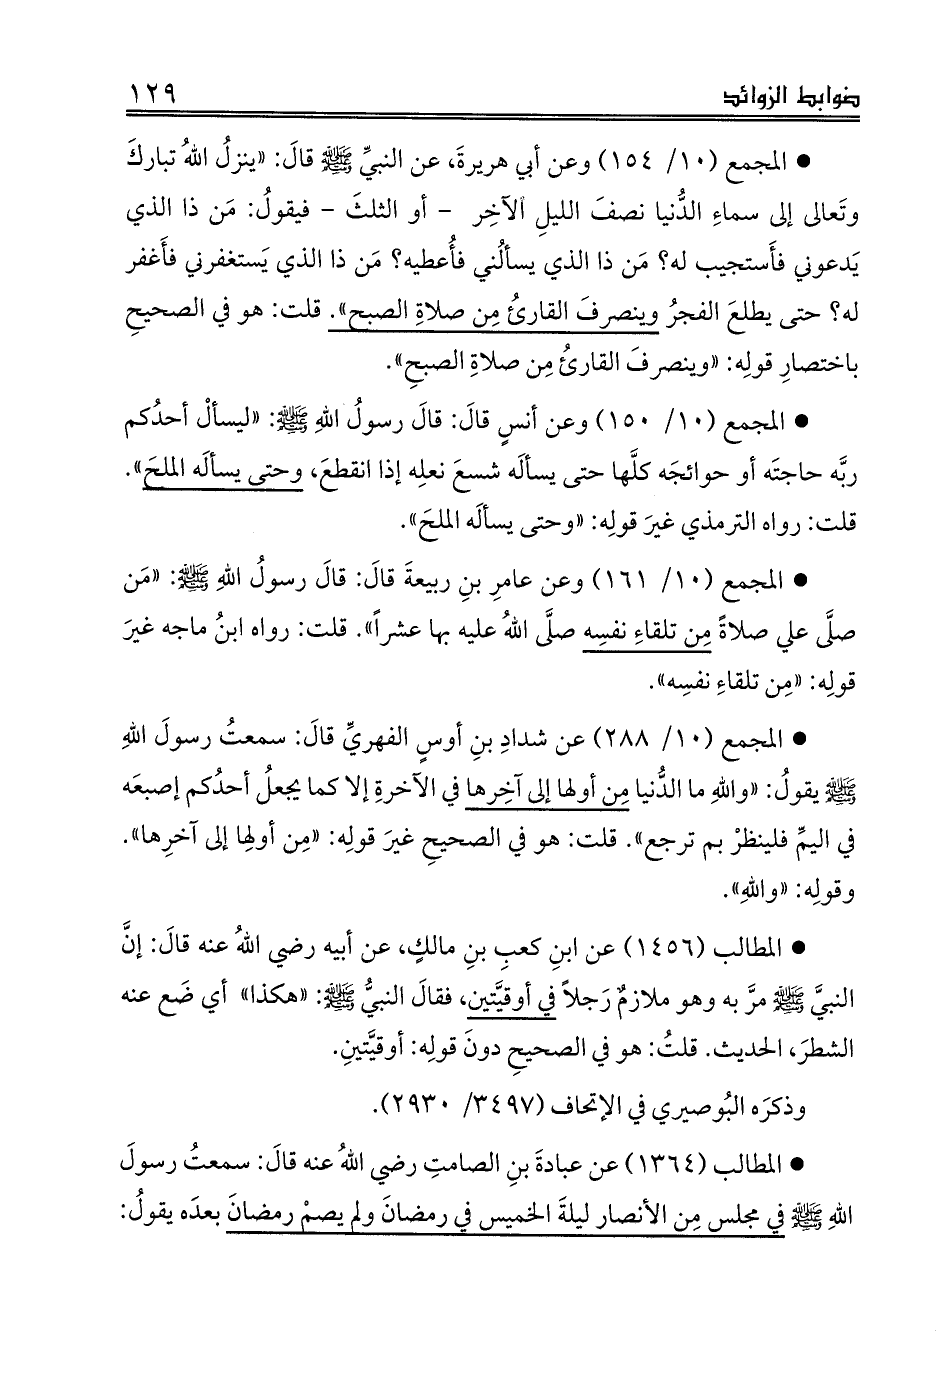 ضوابط الزوائد ١٢٩
● المجمع (١٠/ ١٥٤) وعن أبي هريرةَ، عن النبيِّ ﷺ قالَ: «ينزلُ اللهُ تباركَ
وتَعالى إلى سماءِ الدُّنيا نصفَ الليلِ الآخِرِ - أو الثلثَ - فيقولُ: مَن ذا الذي
يَدعوني فأَستجيب له؟ مَن ذا الذي يسألُني فأُعطيه؟ مَن ذا الذي يَستغفرني فأَغفر
له؟ حتى يطلعَ الفجرُ وينصرفَ القارئُ مِن صلاةِ الصبحِ». قلت: هو في الصحيحِ
باختصارِ قولِه: «وينصرفَ القارئُ مِن صلاةِ الصبحِ».
● المجمع (١٠/ ١٥٠) وعن أنسٍ قالَ: قالَ رسولُ اللهِ ﷺ: «ليسألْ أحدُكم
ربَّه حاجتَه أو حوائجَه كلَّها حتى يسألَه شسعَ نعلِه إذا انقطعَ، وحتى يسألَه الملحَ».
قلت: رواه الترمذي غيرَ قولِه: «وحتى يسألَه الملحَ».
● المجمع (١٠/ ١٦١) وعن عامرِ بنِ ربيعةَ قالَ: قالَ رسولُ اللهِ ﷺ: «مَن
صلَّى علي صلاةً مِن تلقاءِ نفسِه صلَّى اللهُ عليه بها عشراً». قلت: رواه ابنُ ماجه غيرَ
قولِه: «مِن تلقاءِ نفسِه».
● المجمع (١٠/ ٢٨٨) عن شدادِ بنِ أوسٍ الفهريِّ قالَ: سمعتُ رسولَ اللهِ
ﷺ يقولُ: «واللهِ ما الدُّنيا مِن أولها إلى آخِرِها في الآخرةِ إلا كما يجعلُ أحدُكم إصبعَه
في اليمِّ فلينظرْ بم ترجع». قلت: هو في الصحيحِ غيرَ قولِه: «مِن أولِها إلى آخرِها».
وقولِه: «واللهِ».
● المطالب (١٤٥٦) عن ابنِ كعبِ بنِ مالكٍ، عن أبيه رضي اللهُ عنه قالَ: إنَّ
النبيَّ ﷺ مرَّ به وهو ملازمٌ رَجلاً في أوقيَّتين، فقالَ النبيُّ ﷺ: «هكذا» أي ضَع عنه
الشطرَ، الحديث. قلتُ: هو في الصحيحِ دونَ قولِه: أوقيَّتينِ.
وذكرَه البُوصيري في الإتحاف (٣٤٩٧/ ٢٩٣٠).
● المطالب (١٣٦٤) عن عبادةَ بنِ الصامتِ رضي اللهُ عنه قالَ: سمعتُ رسولَ
اللهِ ﷺ في مجلس مِن الأنصار ليلةَ الخميس في رمضانَ ولم يصمْ رمضانَ بعدَه يقولُ: